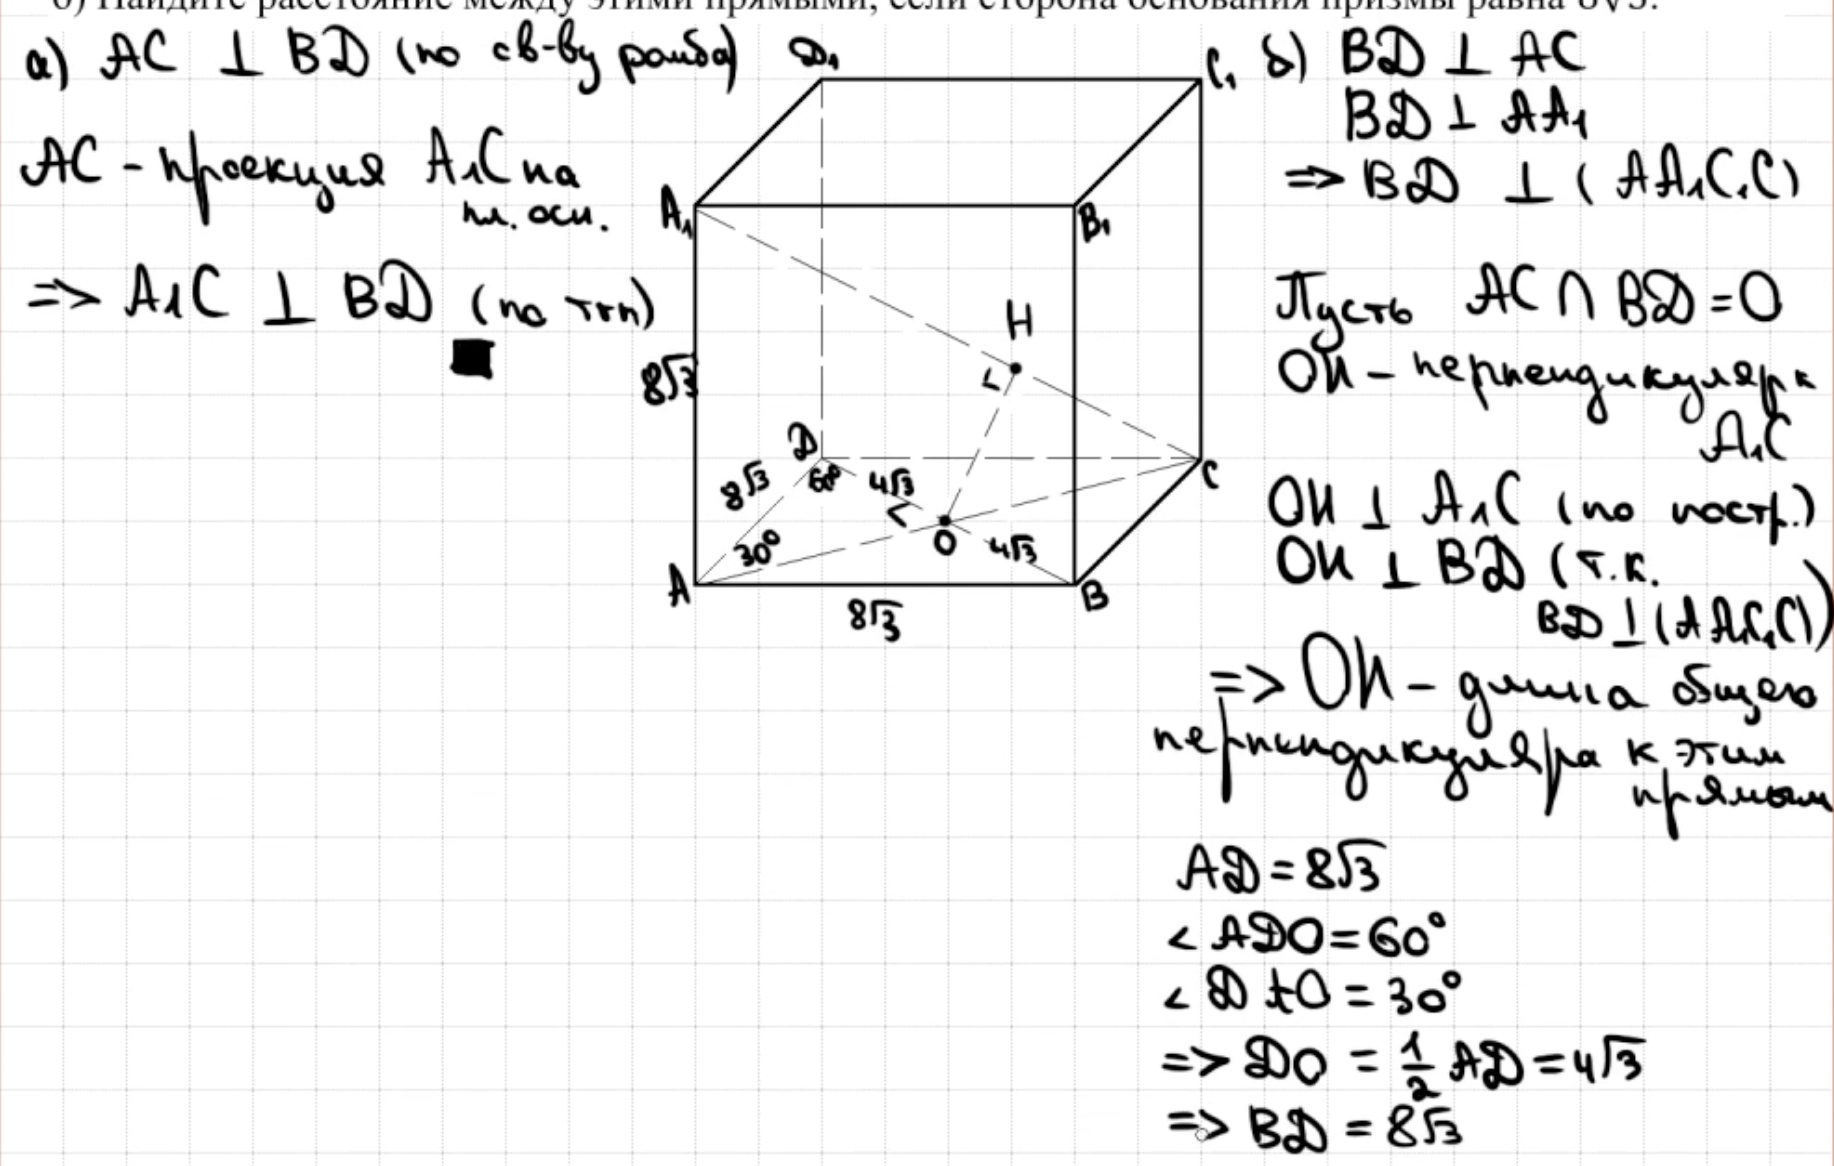 б) Найдите расстояние между этими прямыми, если сторона основания призмы равна 8√3.
а) AC ⊥ BD (по св-ву ромба)
AC - проекция A₁C на
пл. осн.
=> A₁C ⊥ BD (по ттп)
D₁
C₁
A₁
B₁
H
8√3
D
60°
4√3
8√3
C
30°
O
4√3
A
B
8√3
б) BD ⊥ AC
BD ⊥ AA₁
=> BD ⊥ (AA₁C₁C)
Пусть AC ∩ BD = O
OH - перпендикуляр к
A₁C
OH ⊥ A₁C (по постр.)
OH ⊥ BD (т.к.
BD ⊥ (AA₁C₁C))
=> OH - длина общего
перпендикуляра к этим
прямым
AD = 8√3
< ADO = 60°
< DAO = 30°
=> DO = 1/2 AD = 4√3
=> BD = 8√3